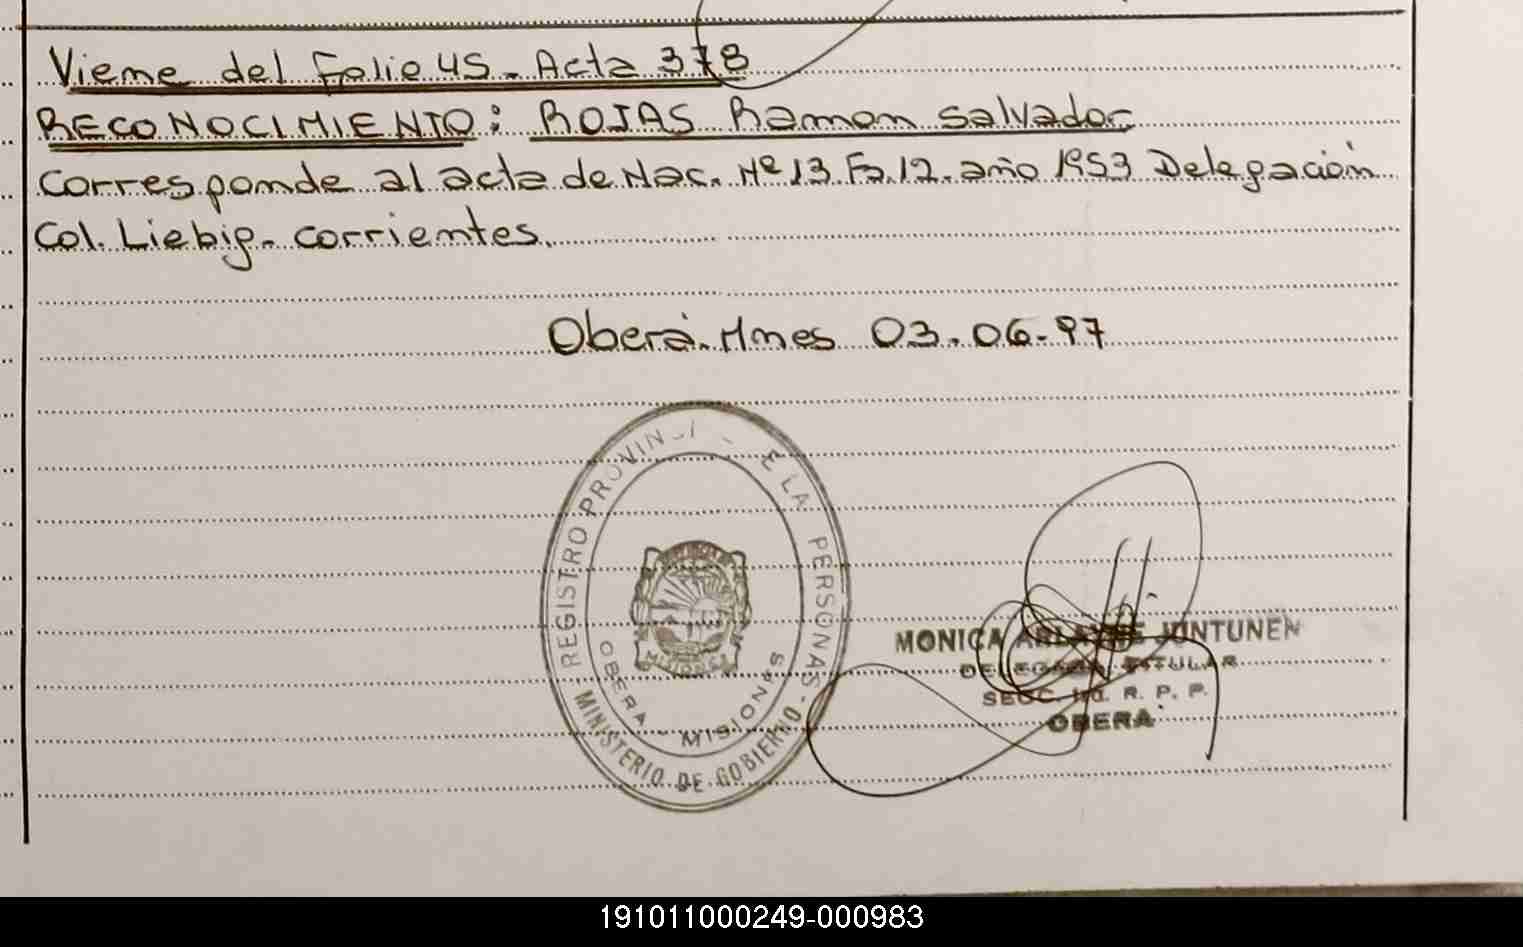 Viene del Folio 45. Acta 378
RECONOCIMIENTO: ROJAS Ramon Salvador
Corresponde al acta de Nac. Nº 13 Fo. 12. año 1953 Delegación
Col. Liebig. Corrientes.
Oberá. Mnes 03.06.97
REGISTRO PROVINCI E LA PERSONAS
OBERA - MISIONES
MISIONES
MINISTERIO DE GOBIERNO
MONICA JUNTUNEN
TITULAR
SECC. R. P. P.
OBERA
191011000249-000983